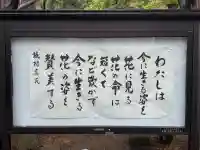 わたしは
今に生きる姿を
花に見る
花の命は
短くて
など嘆かず
今に生きる
花の姿を
賛美する